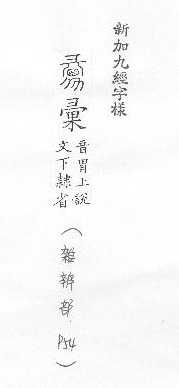 新加九經字樣
彙
音胃上說
文下隸省
(雜辨部 P54)